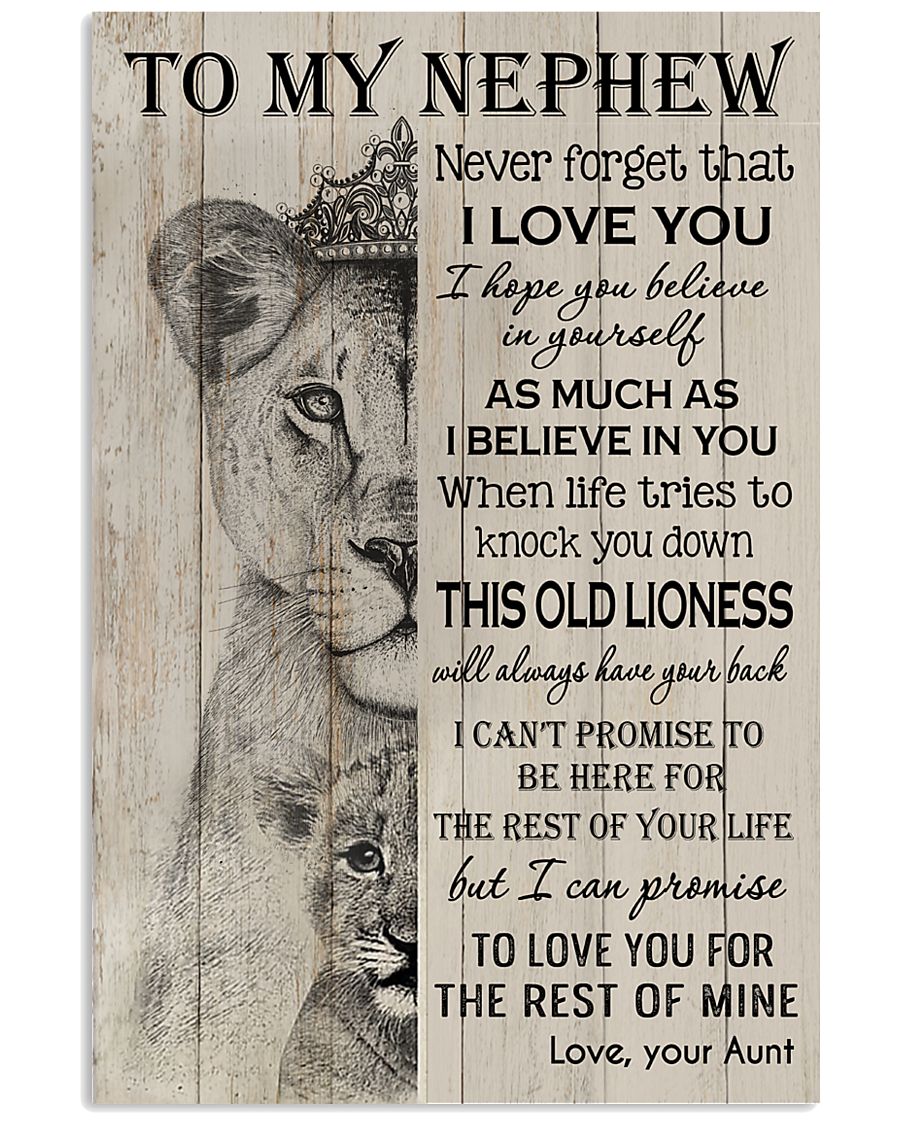 TO MY NEPHEW
Never forget that
I LOVE YOU
I hope you believe
in yourself
AS MUCH AS
I BELIEVE IN YOU
When life tries to
knock you down
THIS OLD LIONESS
will always have your back
I CAN'T PROMISE TO
BE HERE FOR
THE REST OF YOUR LIFE
but I can promise
TO LOVE YOU FOR
THE REST OF MINE
Love, your Aunt